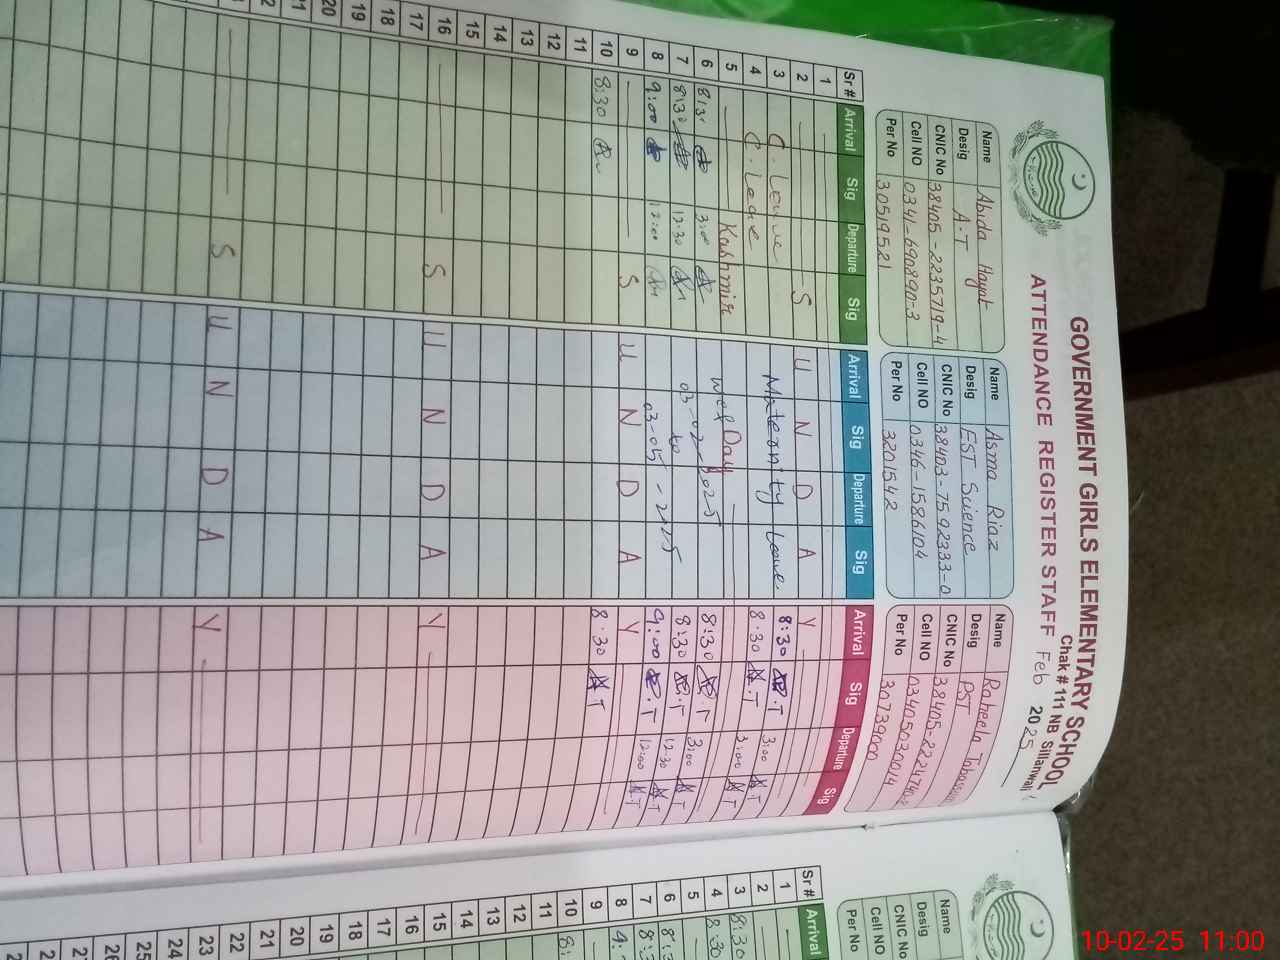 GOVERNMENT GIRLS ELEMENTARY SCHOOL
Chak # 111 NB Sillanwali
ATTENDANCE REGISTER STAFF Feb 2025
Name Abida Hayat
Desig A.T
CNIC No 38405-2235719-4
Cell NO 0341-690890-3
Per No 30519521
Name Asma Riaz
Desig EST Science
CNIC No 38403-7592333-0
Cell NO 0346-1586104
Per No 3201542
Name Raheela
Desig PST
CNIC No 38405-222474
Cell NO 03405030014
Per No 30739000
Sr # Arrival Sig Departure Sig Arrival Sig Departure Sig Arrival Sig Departure Sig
1
2 S U N D A Y
3 C. Leave Maternity Leave 8:30 3:00
4 C. Leave 8:30 3:00
5 Kashmir Day
6 8:3 3:00 wef 8:30 3:00
7 8:30 12:30 03-02-2025 8:30 12:30
to
8 9:00 12:00 03-05-2025 9:00 12:00
9 S U N D A Y
10 8:30 8:30
11
12
13
14
15
16 S U N D A Y
17
18
19
20
21
2
S U N D A Y
Name
Desig
CNIC No
Cell NO
Per No
Sr # Arrival
1
2
3 8:30
4 8:30
5
6 8:
7 8:
8 9:
9
10 8:
11
12
13
14
15
16
17
18
19
20
21
22
23
24
25
26
2
10-02-25 11:00